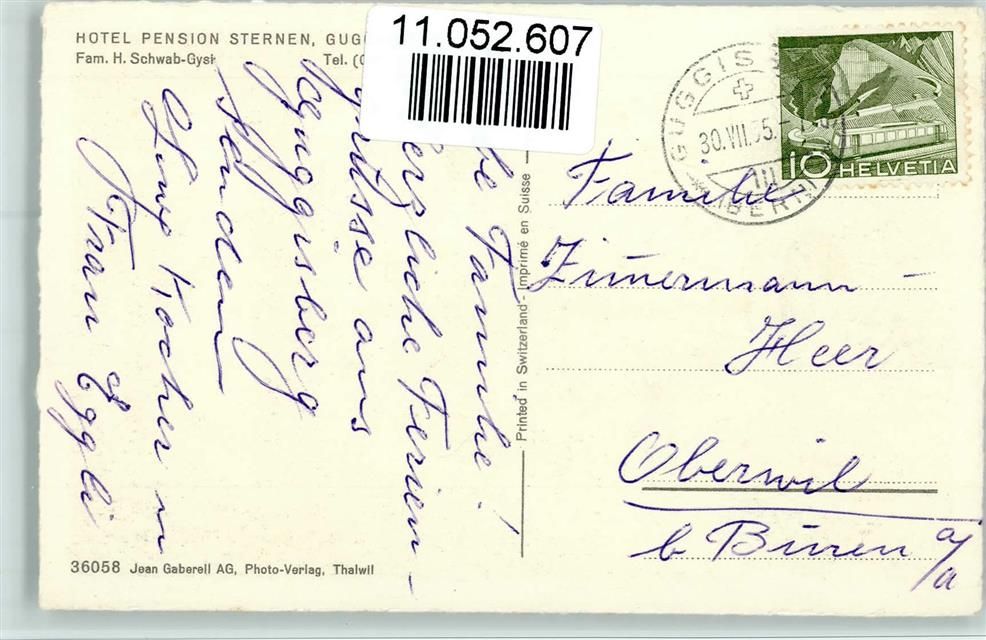 HOTEL PENSION STERNEN, GUG
Fam. H. Schwab-Gysi Tel. (0
11.052.607
be Familie!
erzliche Ferien-
grüsse aus
Guggisberg
senden
Kocher
Frau Eggli
Printed in Switzerland - Imprimé en Suisse
GUGGIS
(BERN)
30.VII.55.-
10 HELVETIA
Familie
Zimermann -
Heer
Oberwil
b Büren a/A
36058 Jean Gaberell AG, Photo-Verlag, Thalwil